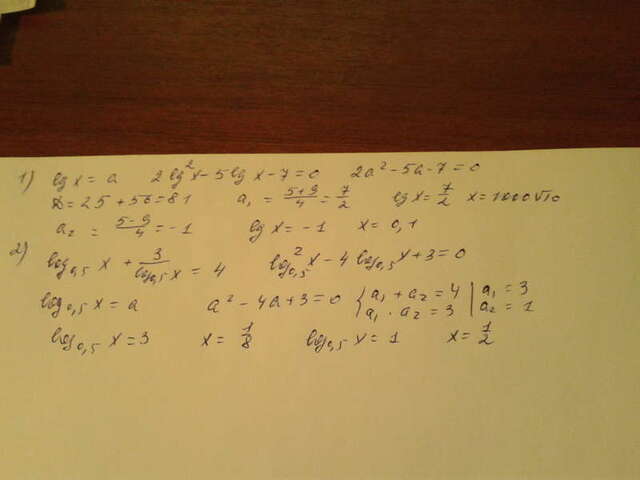 1) lg x = a   2 lg² x - 5 lg x - 7 = 0   2a² - 5a - 7 = 0
D = 25 + 56 = 81   a₁ = (5+9)/4 = 7/2   lg x = 7/2   x = 1000√10
a₂ = (5-9)/4 = -1   lg x = -1   x = 0,1
2) log₀,₅ x + 3/(log₀,₅ x) = 4   log²₀,₅ x - 4 log₀,₅ x + 3 = 0
log₀,₅ x = a   a² - 4a + 3 = 0   { a₁ + a₂ = 4 | a₁ = 3
a₁ · a₂ = 3 | a₂ = 1
log₀,₅ x = 3   x = 1/8   log₀,₅ x = 1   x = 1/2